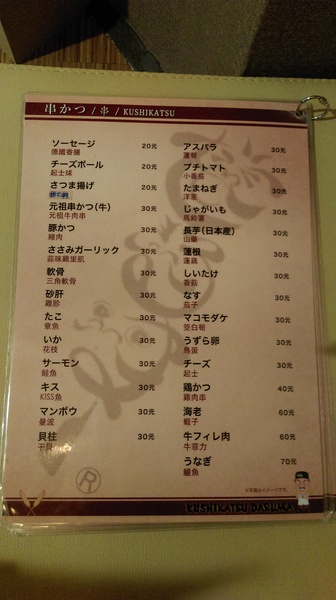 串かつ / 串 / KUSHIKATSU
ソーセージ 20元
德國香腸
チーズボール 20元
起士球
さつま揚げ 20元
元祖串かつ(牛) 30元
元祖牛肉串
豚かつ 30元
豬肉
ささみガーリック 30元
蒜味雞里肌
軟骨 30元
三角軟骨
砂肝 30元
雞胗
たこ 30元
章魚
いか 30元
花枝
サーモン 30元
鮭魚
キス 30元
KISS魚
マンボウ 30元
曼波
貝柱 30元
干貝
アスパラ 30元
蘆筍
プチトマト 30元
小番茄
たまねぎ 30元
洋蔥
じゃがいも 30元
馬鈴薯
長芋(日本産) 30元
山藥
蓮根 30元
蓮藕
しいたけ 30元
香菇
なす 30元
茄子
マコモダケ 30元
茭白筍
うずら卵 30元
鳥蛋
チーズ 30元
起士
鶏かつ 40元
雞肉串
海老 60元
蝦子
牛フィレ肉 60元
牛菲力
うなぎ 70元
鰻魚
※写真はイメージです。
R
KUSHIKATSU DARUMA